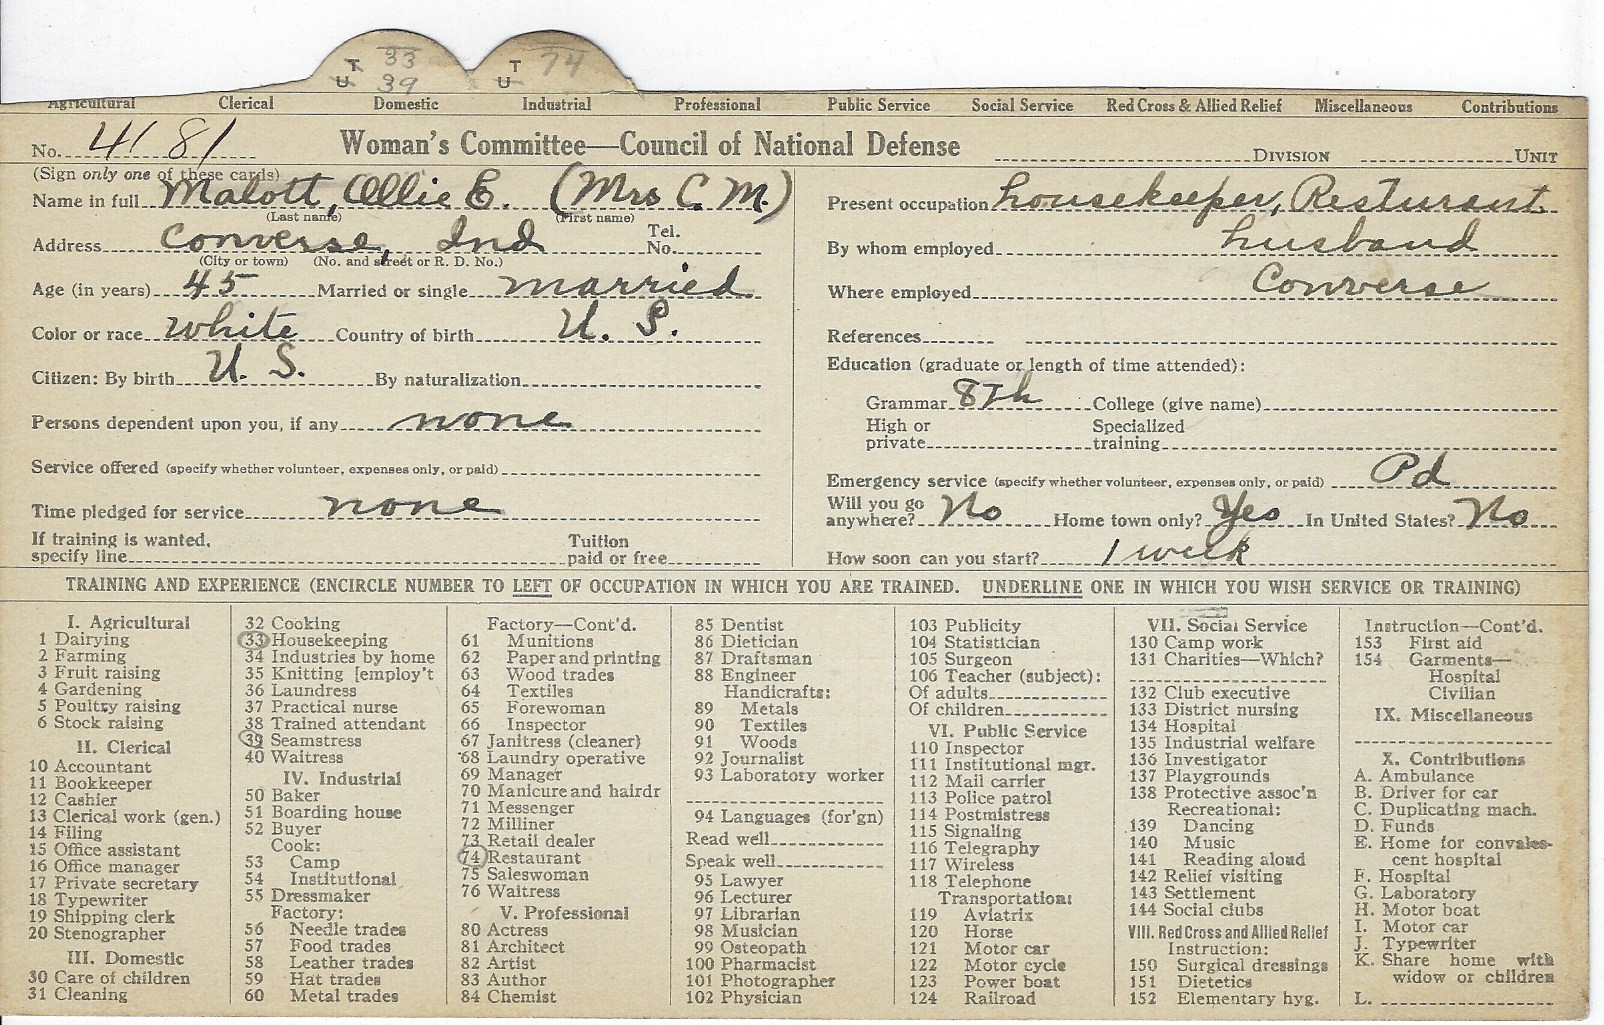 T 33 T 74
U 39 U
Agricultural Clerical Domestic Industrial Professional Public Service Social Service Red Cross & Allied Relief Miscellaneous Contributions
No. 4181 Woman's Committee—Council of National Defense DIVISION UNIT
(Sign only one of these cards)
Name in full Malott, Ollie E. (Mrs C. M.)
(Last name) (First name)
Address Converse, Ind Tel. No.
(City or town) (No. and street or R. D. No.)
Age (in years) 45 Married or single married
Color or race white Country of birth U. S.
Citizen: By birth U. S. By naturalization
Persons dependent upon you, if any none
Service offered (specify whether volunteer, expenses only, or paid)
Time pledged for service none
If training is wanted, Tuition
specify line paid or free
Present occupation housekeeper, Resturant
By whom employed husband
Where employed Converse
References
Education (graduate or length of time attended):
Grammar 8Th College (give name)
High or Specialized
private training
Emergency service (specify whether volunteer, expenses only, or paid) Pd
Will you go
anywhere? No Home town only? Yes In United States? No
How soon can you start? 1 week
TRAINING AND EXPERIENCE (ENCIRCLE NUMBER TO LEFT OF OCCUPATION IN WHICH YOU ARE TRAINED. UNDERLINE ONE IN WHICH YOU WISH SERVICE OR TRAINING)
I. Agricultural
1 Dairying
2 Farming
3 Fruit raising
4 Gardening
5 Poultry raising
6 Stock raising
II. Clerical
10 Accountant
11 Bookkeeper
12 Cashier
13 Clerical work (gen.)
14 Filing
15 Office assistant
16 Office manager
17 Private secretary
18 Typewriter
19 Shipping clerk
20 Stenographer
III. Domestic
30 Care of children
31 Cleaning
32 Cooking
33 Housekeeping
34 Industries by home
35 Knitting [employ't
36 Laundress
37 Practical nurse
38 Trained attendant
39 Seamstress
40 Waitress
IV. Industrial
50 Baker
51 Boarding house
52 Buyer
Cook:
53 Camp
54 Institutional
55 Dressmaker
Factory:
56 Needle trades
57 Food trades
58 Leather trades
59 Hat trades
60 Metal trades
Factory—Cont'd.
61 Munitions
62 Paper and printing
63 Wood trades
64 Textiles
65 Forewoman
66 Inspector
67 Janitress (cleaner)
68 Laundry operative
69 Manager
70 Manicure and hairdr
71 Messenger
72 Milliner
73 Retail dealer
74 Restaurant
75 Saleswoman
76 Waitress
V. Professional
80 Actress
81 Architect
82 Artist
83 Author
84 Chemist
85 Dentist
86 Dietician
87 Draftsman
88 Engineer
Handicrafts:
89 Metals
90 Textiles
91 Woods
92 Journalist
93 Laboratory worker
94 Languages (for'gn)
Read well
Speak well
95 Lawyer
96 Lecturer
97 Librarian
98 Musician
99 Osteopath
100 Pharmacist
101 Photographer
102 Physician
103 Publicity
104 Statistician
105 Surgeon
106 Teacher (subject):
Of adults
Of children
VI. Public Service
110 Inspector
111 Institutional mgr.
112 Mail carrier
113 Police patrol
114 Postmistress
115 Signaling
116 Telegraphy
117 Wireless
118 Telephone
Transportation:
119 Aviatrix
120 Horse
121 Motor car
122 Motor cycle
123 Power boat
124 Railroad
VII. Social Service
130 Camp work
131 Charities—Which?
132 Club executive
133 District nursing
134 Hospital
135 Industrial welfare
136 Investigator
137 Playgrounds
138 Protective assoc'n
Recreational:
139 Dancing
140 Music
141 Reading aloud
142 Relief visiting
143 Settlement
144 Social clubs
VIII. Red Cross and Allied Relief
Instruction:
150 Surgical dressings
151 Dietetics
152 Elementary hyg.
Instruction—Cont'd.
153 First aid
154 Garments—
Hospital
Civilian
IX. Miscellaneous
X. Contributions
A. Ambulance
B. Driver for car
C. Duplicating mach.
D. Funds
E. Home for convales-
cent hospital
F. Hospital
G. Laboratory
H. Motor boat
I. Motor car
J. Typewriter
K. Share home with
widow or children
L.